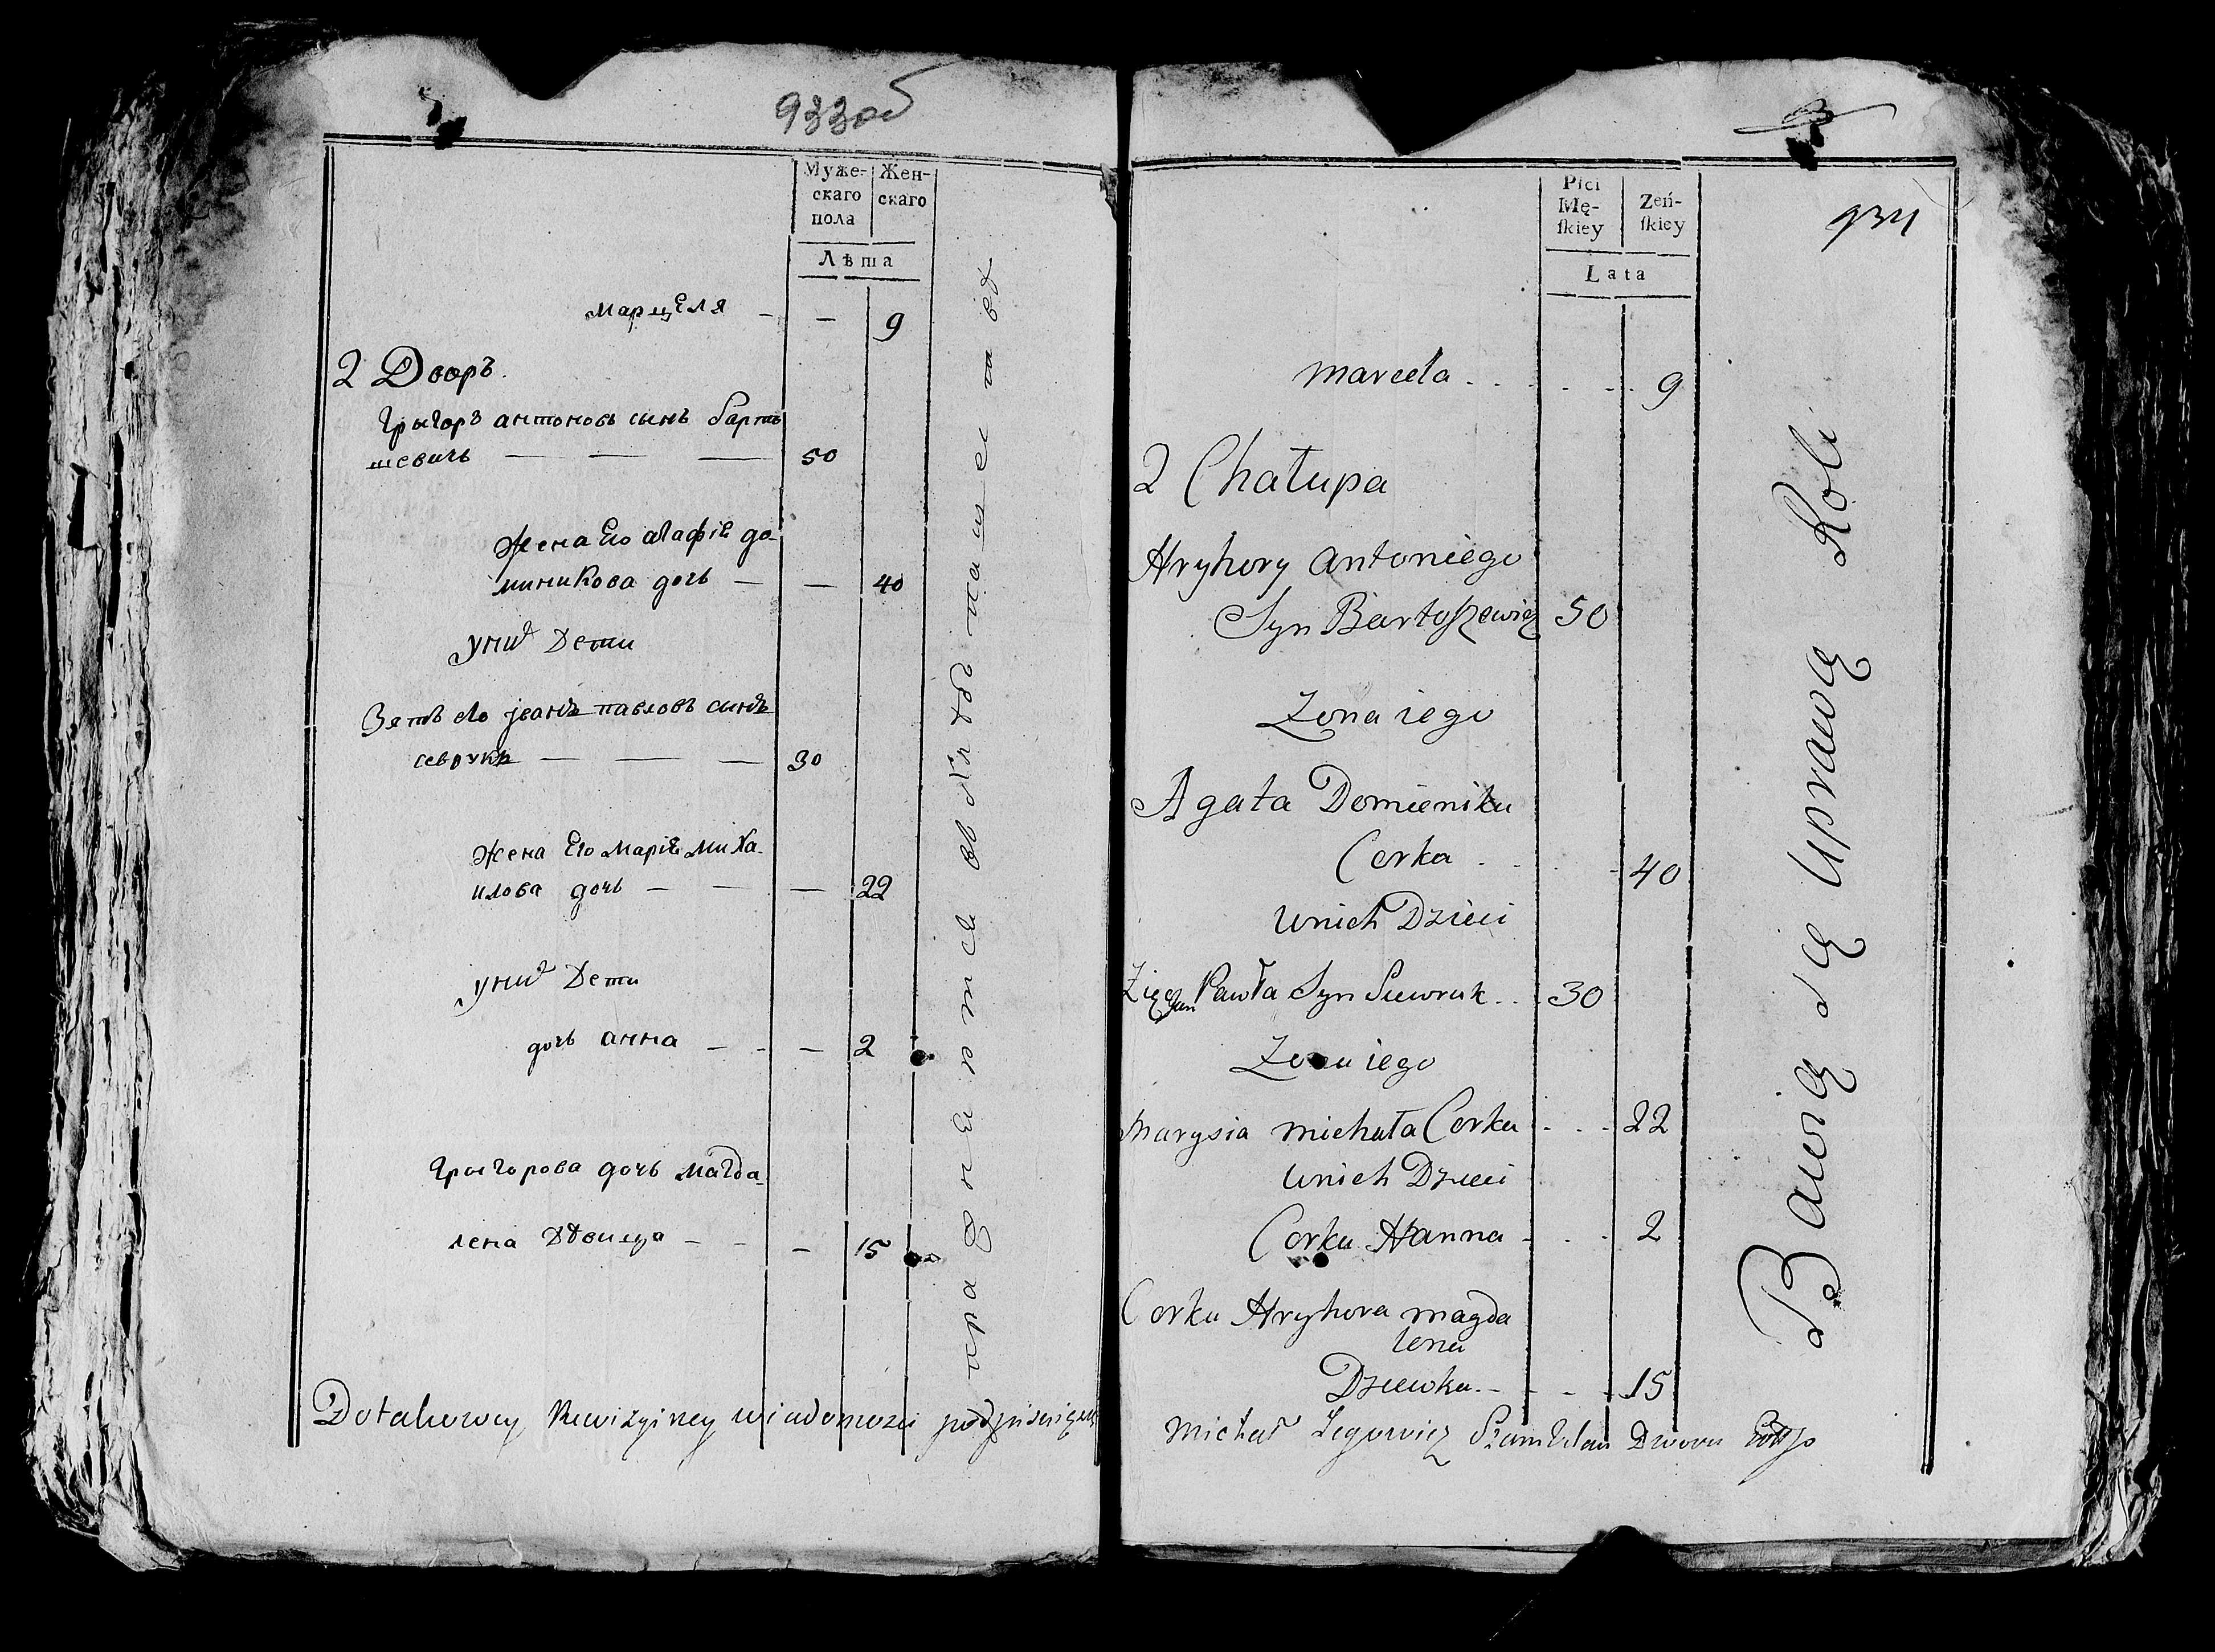 933об
Муже-
скаго
пола
Жен-
скаго
Лѣта
Марцеля - - 9
2 Дворъ.
Грыгоръ антоновъ сынъ барто
шевичъ — — — 50
Жена Его агафіѣ до
миникова дочь — — 40
у них Дети
Зятъ его јванъ павловъ сынъ
севрукъ — — — 30
Жена Его Маріѣ Миха-
илова дочь — — — 22
у них Дети
дочь анна - - - 2
Грыгорова дочь Магда-
лена Дѣвица - - - 15
Dotakowey Rewizyiney wiadomosci podpisuię się
934
Płci
Mę-
ſkiey
Zeń-
ſkiey
Lata
Marcela . . . . . 9
2 Chałupa
Hryhory Antoniego
Syn Bartoszewicz 50
Zona iego
Agata Domienika
Corka . . . 40
Unich Dzieci
Zięć Jan Pawła Syn Siewruk . . 30
Zona iego
Marysia Michała Corka . . . 22
Unich Dzieci
Corka Hanna . . . 2
Corka Hryhora Magda
lena
Dziewka . - - - 15
Michał
Dworu
Bawią się Uprawą Roli